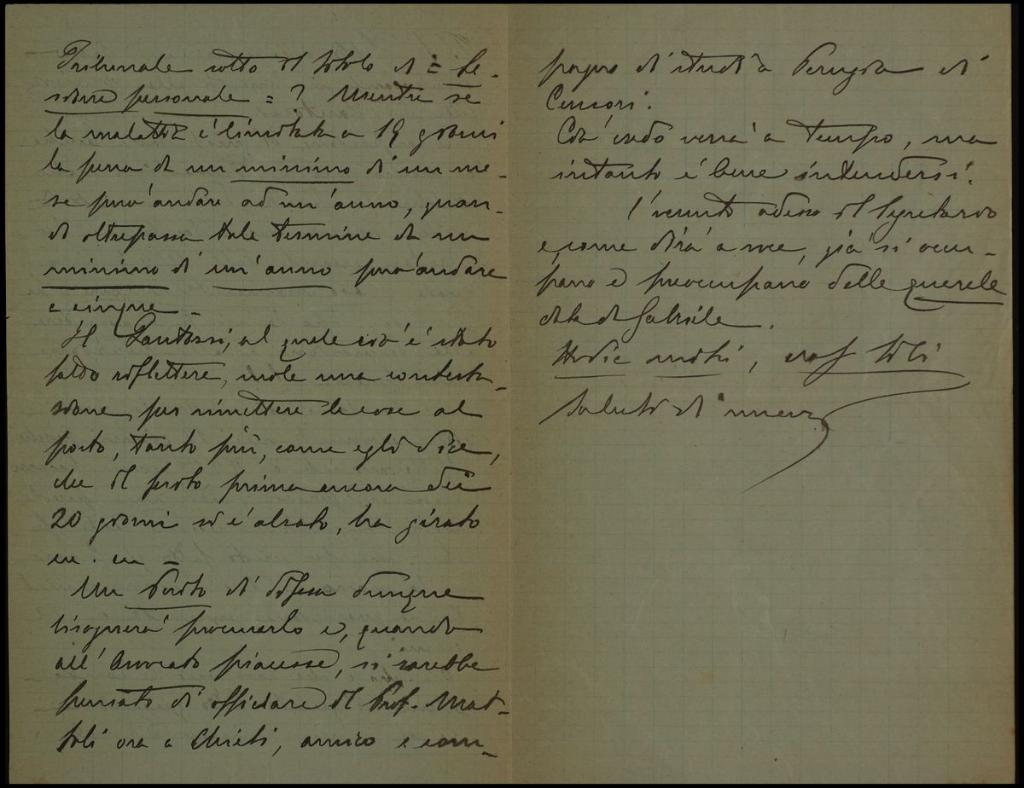 Tribunale sotto il titolo di = Le-
sione personale = ? Mentre se
la malattia è limitata a 19 giorni
la pena da un minimo di un me-
se può andare ad un'anno, quan-
do oltrepassa tale termine da un
minimo di un'anno può andare
a cinque -
Il al quale ciò è stato
fatto riflettere, vuole una contesta-
zione per rimettere le cose al
posto, tanto più, come egli dice,
che il ferito prima ancora dei
20 giorni si è alzato, ha girato
ec. ec -
Un perito di difesa dunque
bisognerà procurarlo e, quando
all'Avvocato piacesse, si sarebbe
pensato di officiare il Prof. Mat-
toli ora a Chieti, amico e com-
pagno di studi a Perugia di
Censori.
Ciò verrà a tempo, ma
intanto è bene intendersi.
È venuto adesso il Segretario
e, come dirà a me, già si occu-
pano e preoccupano delle querele
date da Gabriele.
Hodie mihi, cras tibi
Saluti di